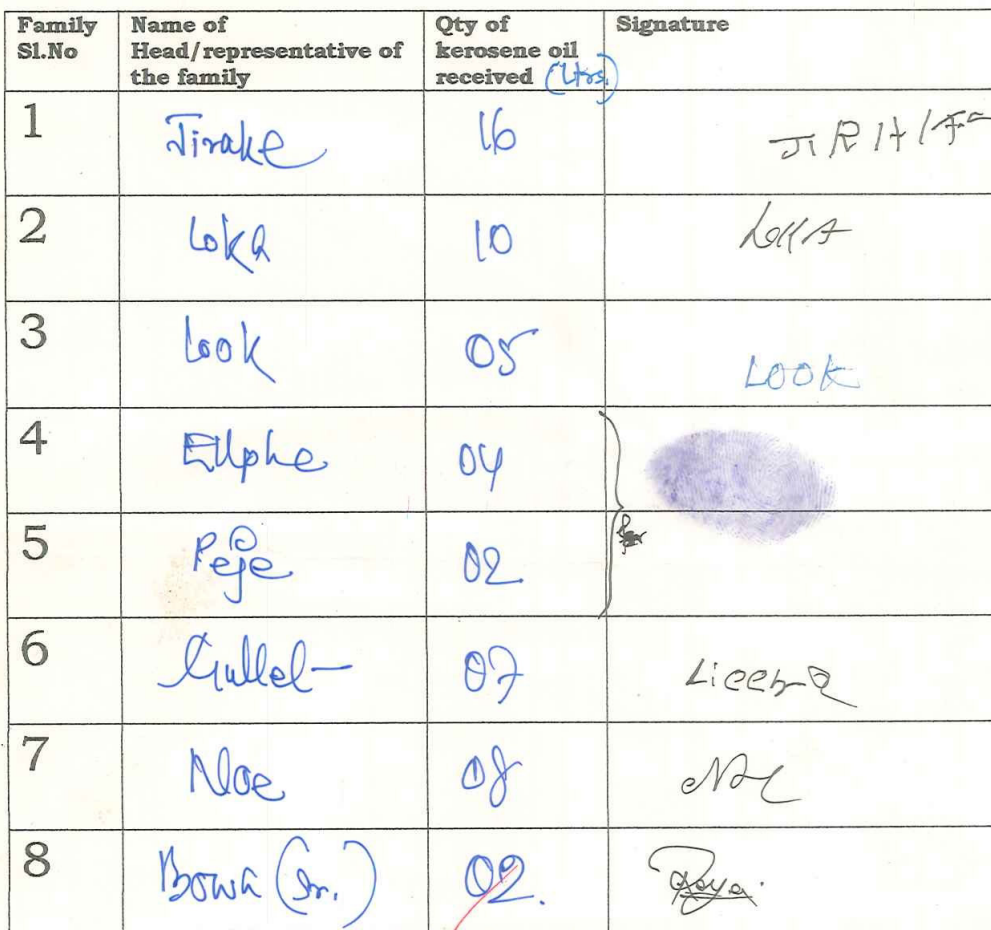 Family Sl.No Name of Head/representative of the family Qty of kerosene oil received (Ltrs.) Signature
1 Jirake 16
2 Loka 10
3 Look 05 LOOK
4 Ellphe 04
5 Peje 02
6 07
7 Noe 08
8 Bowa (Sr.) 02.